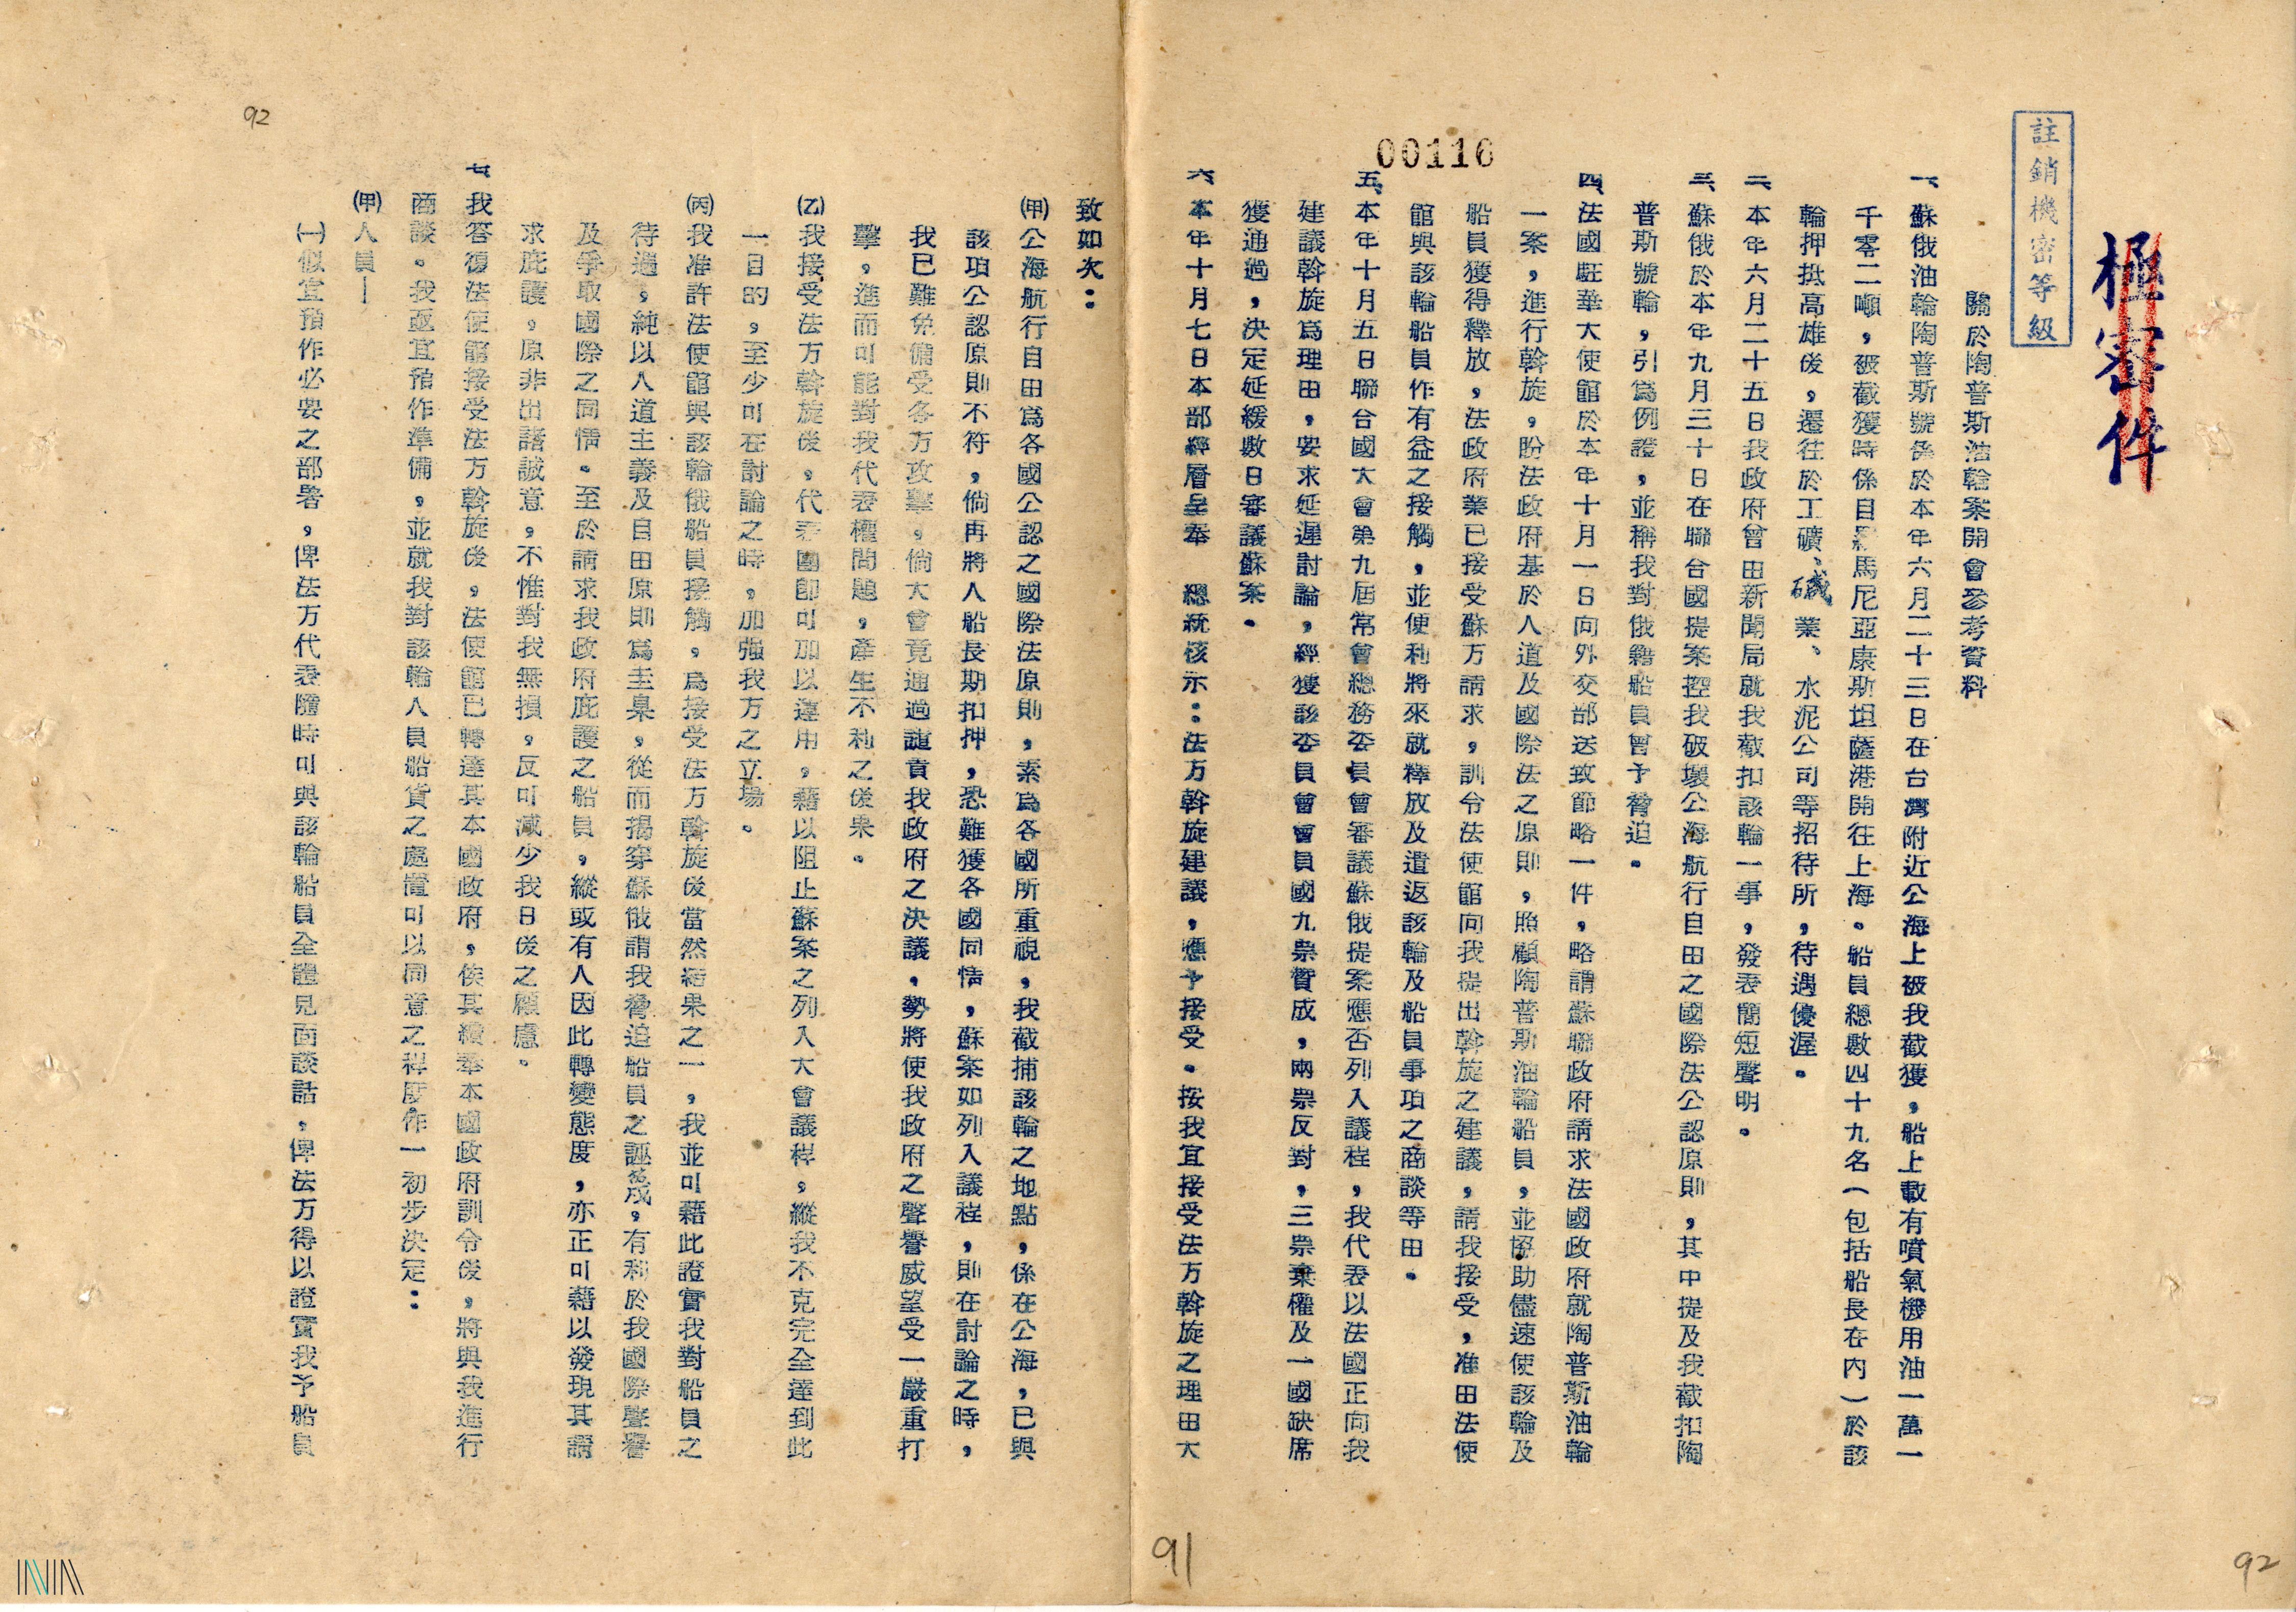 極密件
註銷機密等級
關於陶普斯油輪案開會參考資料
一、蘇俄油輪陶普斯號係於本年六月二十三日在台灣附近公海上被我截獲，船上載有噴氣機用油一萬一
千零二噸，被截獲時係自羅馬尼亞康斯坦薩港開往上海。船員總數四十九名（包括船長在內）於該
輪押抵高雄後，還往於工礦、礁業、水泥公司等招待所，待遇優渥。
二、本年六月二十五日我政府曾由新聞局就我截扣該輪一事，發表簡短聲明。
三、蘇俄於本年九月三十日在聯合國提案控我破壞公海航行自由之國際法公認原則，其中提及我截扣陶
普斯號輪，引為例證，並稱我對俄籍船員曾予脅迫。
四、法國駐華大使館於本年十月一日向外交部送致節略一件，略謂蘇聯政府請求法國政府就陶普斯油輪
一案，進行斡旋。盼法政府基於人道及國際法之原則，照顧陶普斯油輪船員，並協助儘速使該輪及
船員獲得釋放，法政府業已接受蘇方請求，訓令法使館向我提出斡旋之建議，請我接受，准由法使
館與該輪船員作有益之接觸，並便利將來就釋放及遣返該輪及船員事項之商談等由。
五、本年十月五日聯合國大會第九屆常會總務委員會審議蘇俄提案應否列入議程，我代表以法國正向我
建議斡旋為理由，要求延遲討論，經獲該委員會會員國九票贊成，兩票反對，三票棄權及一國缺席
獲通過，決定延緩數日審議蘇案。
六、本年十月七日本部經層呈奉　總統核示：法方斡旋建議，應予接受。按我宜接受法方斡旋之理由大
00116
91
92
致如次：
(甲)公海航行自由為各國公認之國際法原則，素為各國所重視，我截捕該輪之地點，係在公海，已與
該項公認原則不符，倘再將人船長期扣押，恐難獲各國同情，蘇案如列入議程，則在討論之時，
我已難免備受各方攻擊，倘大會竟通過譴責我政府之決議，勢將使我政府之聲譽威望受一嚴重打
擊，進而可能對我代表權問題，產生不利之後果。
(乙)我接受法方斡旋後，代表團即可加以運用，藉以阻止蘇案之列入大會議程，縱我不克完全達到此
一目的，至少可在討論之時，加強我方之立場。
(丙)我准許法使館與該輪俄船員接觸，為接受法方斡旋後當然結果之一，我並可藉此證實我對船員之
待遇，純以人道主義及自由原則為圭臬，從而揭穿蘇俄謂我脅迫船員之誣蔑，有利於我國際聲譽
及爭取國際之同情。至於請求我政府庇護之船員，縱或有人因此轉變態度，亦正可藉以發現其請
求庇護，原非出諸誠意，不惟對我無損，反可減少我日後之顧慮。
七、我答復法使館接受法方斡旋後，法使館已轉達其本國政府，俟其續奉本國政府訓令後，將與我進行
商談。我亟宜預作準備，並就我對該輪人員船貨之處置可以同意之程度作一初步決定：
(甲)人員—
(一)似宜預作必要之部署，俾法方代表隨時可與該輪船員全體見面談話，俾法方得以證實我予船員
92